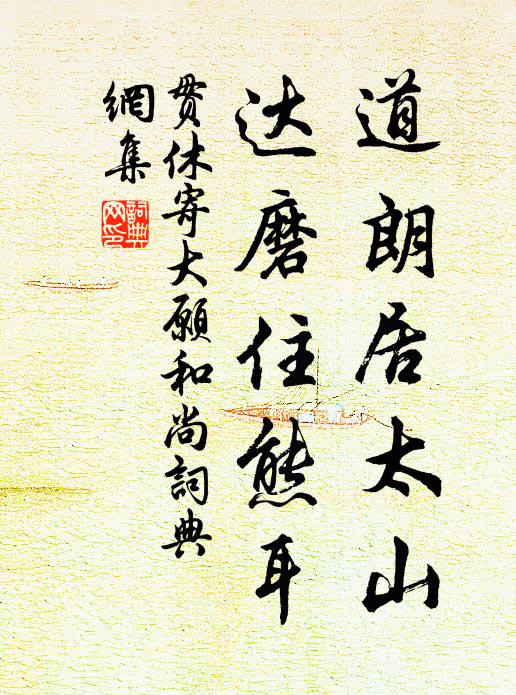 道朗居太山
达磨住熊耳
贯休寄大愿和尚詞典
網集
詞典
网印